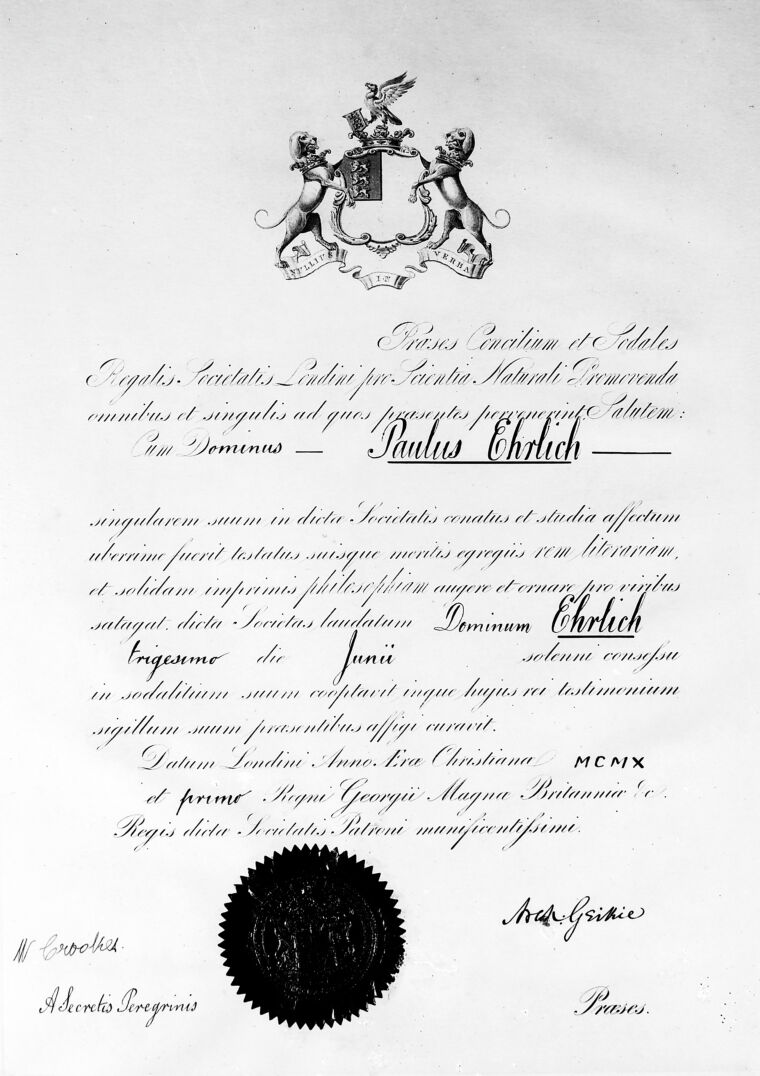 NULLIUS IN VERBA
Præses Concilium et Sodales
Regalis Societatis Londini pro Scientia Naturali Promovenda
omnibus et singulis ad quos præsentes pervenerint Salutem:
Cum Dominus — Paulus Ehrlich —
singularem suum in dictæ Societatis conatus et studia affectum
uberrime fuerit testatus suisque meritis egregiis rem literariam,
et solidam imprimis philosophiam augere et ornare pro viribus
satagat. dicta Societas laudatum Dominum Ehrlich
trigesimo die Junii solenni consessu
in sodalitium suum cooptavit inque hujus rei testimonium
sigillum suum præsentibus affigi curavit.
Datum Londini Anno Æræ Christianæ MCMX
et primo Regni Georgii Magnæ Britanniæ &c.
Regis dictæ Societatis Patroni munificentissimi.
Arch. Geikie
W Crookes.
A Secretis Peregrinis
Præses.